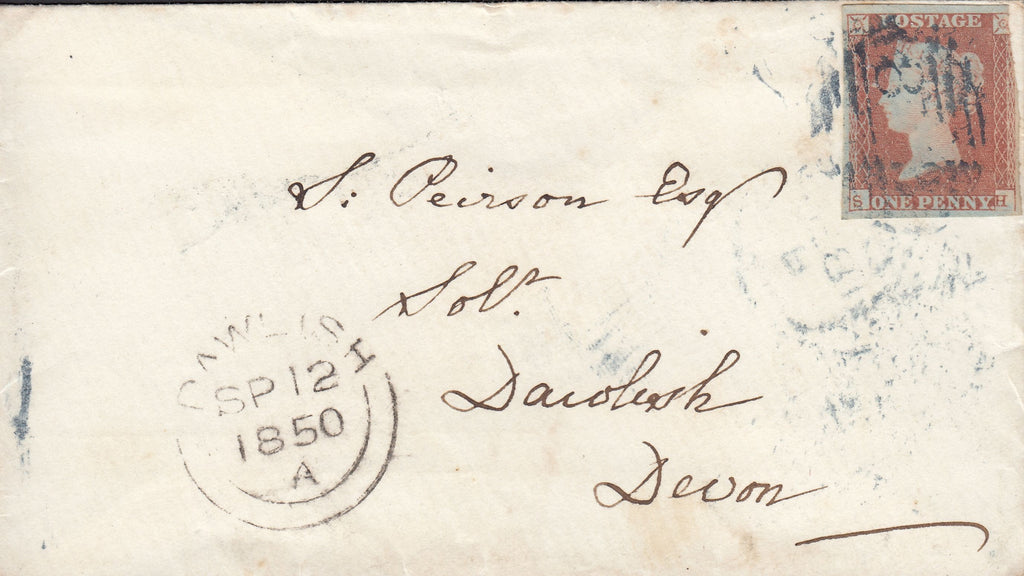 POSTAGE
S ONE PENNY H
S: Peirson Esq
Solr.
Dawlish
Devon
DAWLISH
SP 12
1850
A